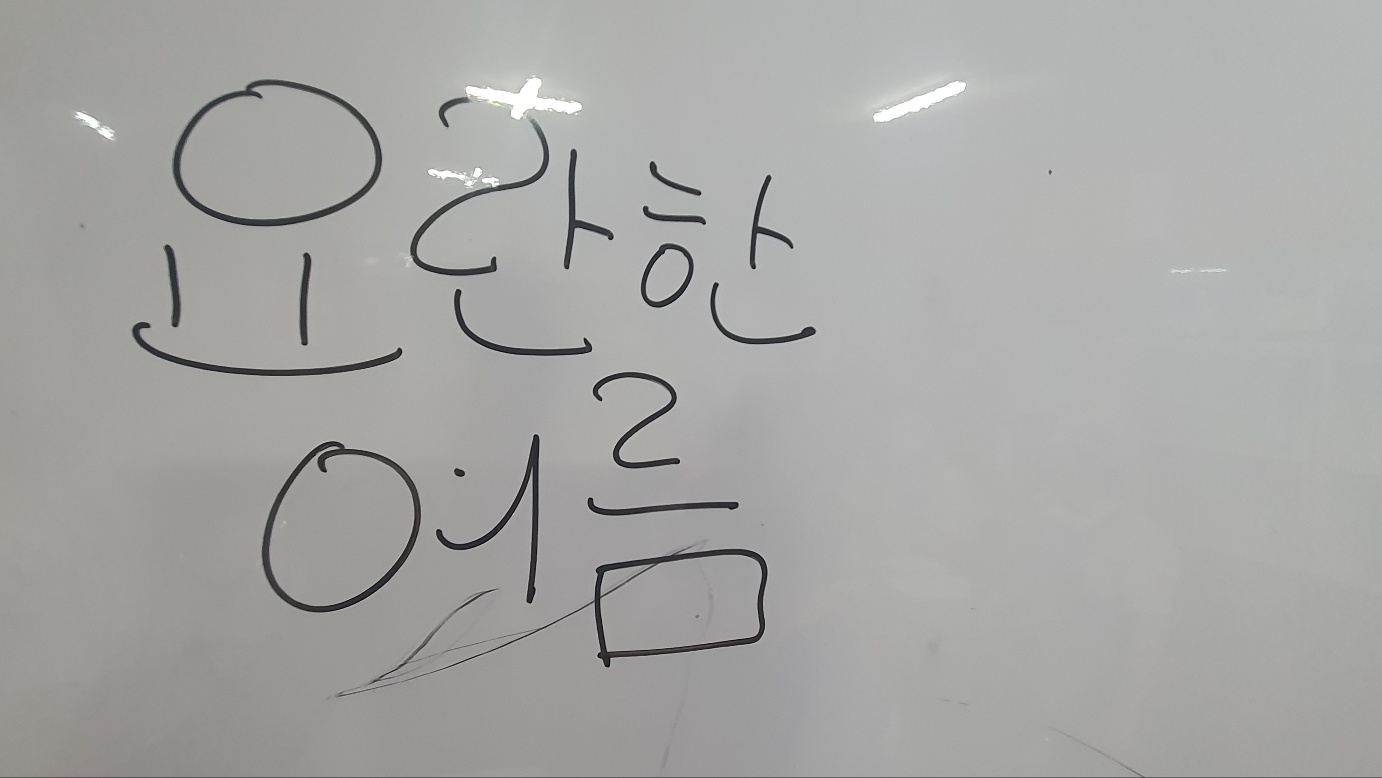 요란한
여름